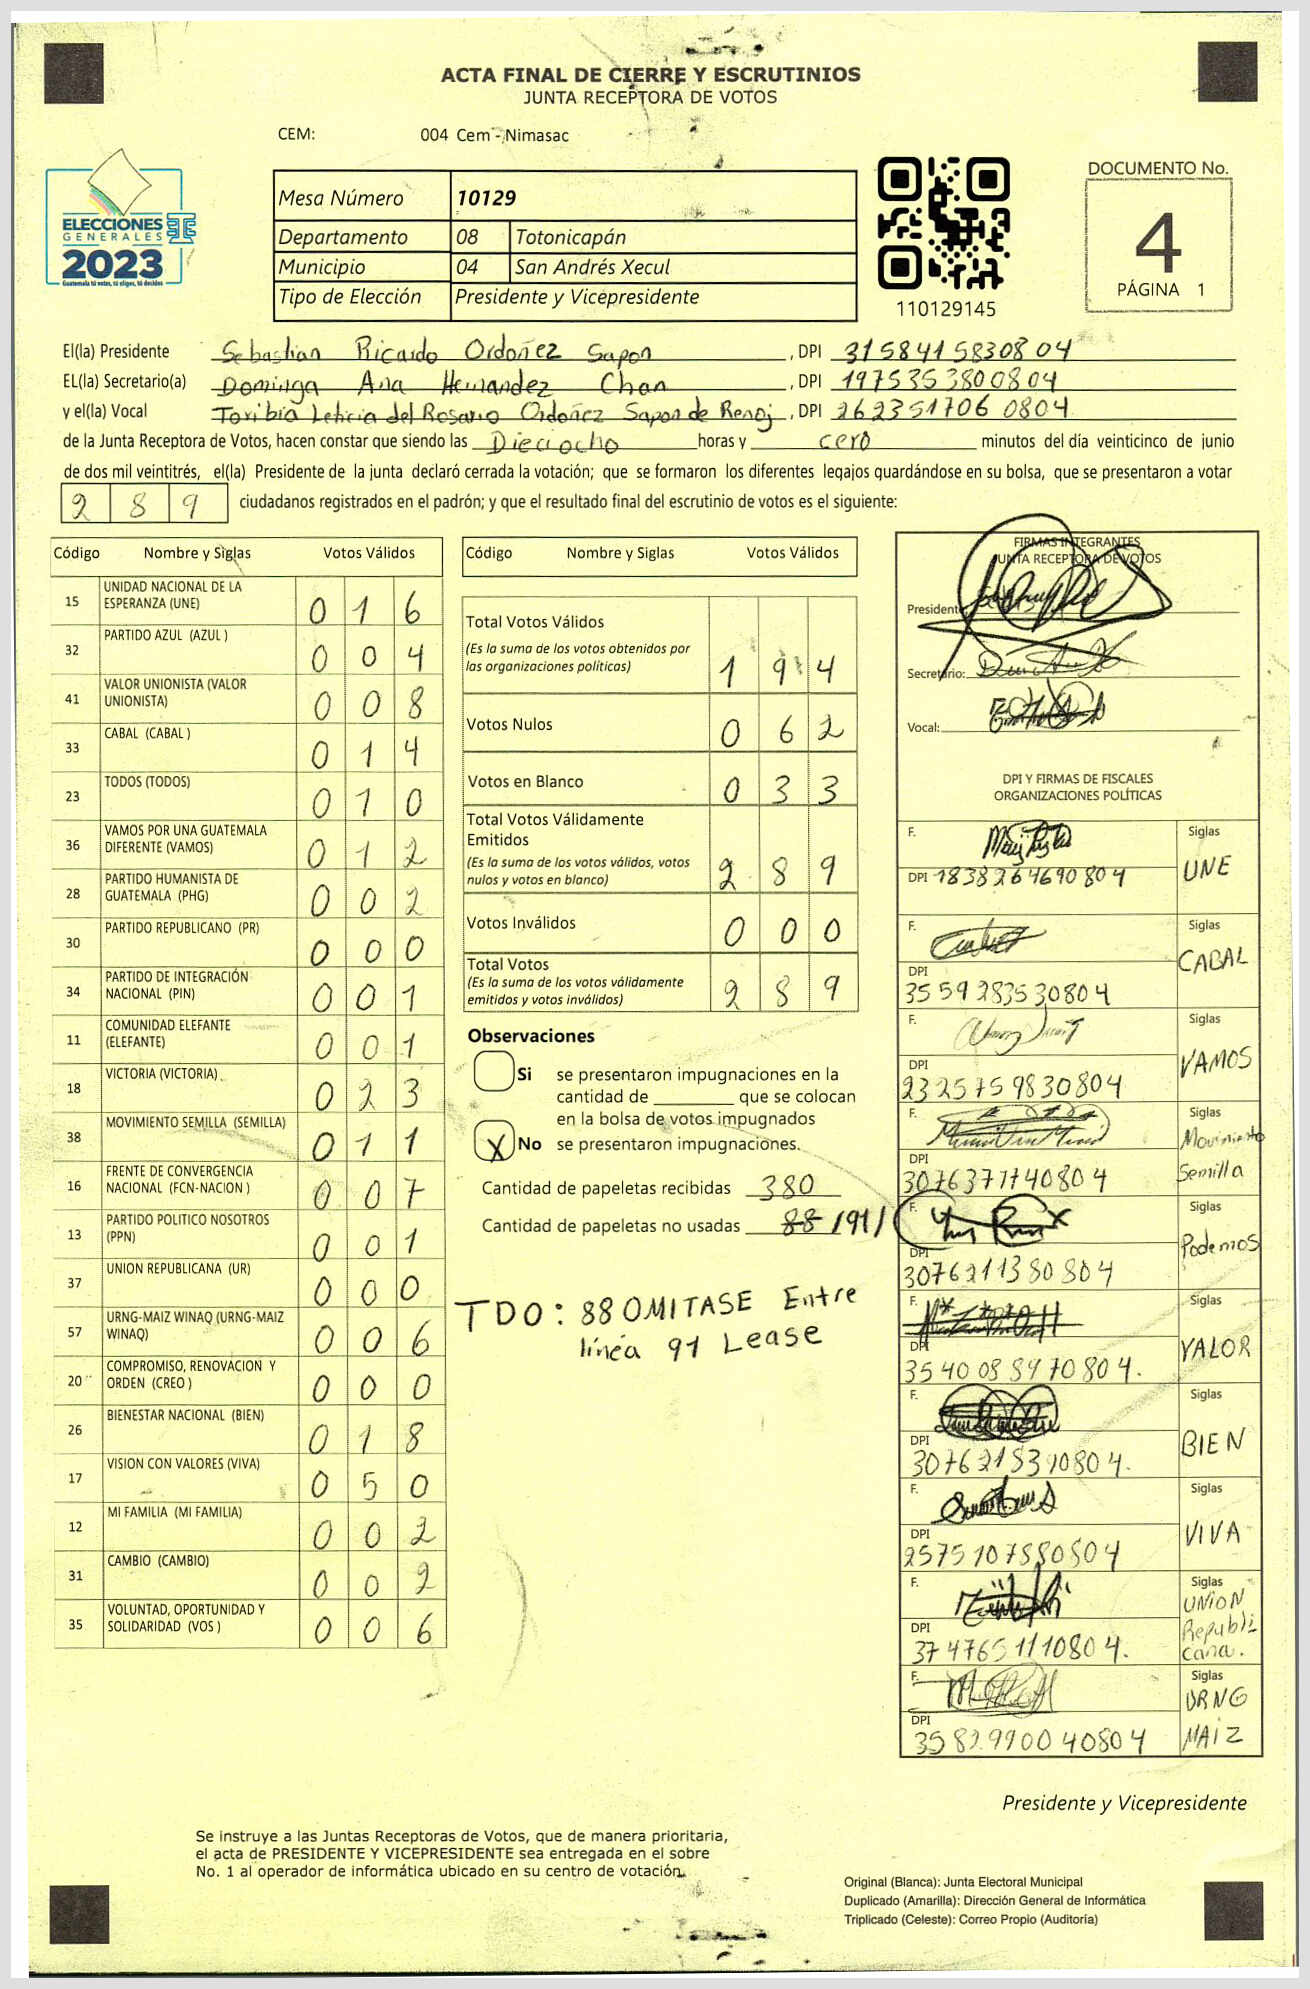 ACTA FINAL DE CIERRE Y ESCRUTINIOS
JUNTA RECEPTORA DE VOTOS
CEM: 004 Cem - Nimasac
ELECCIONES
GENERALES
2023
Guatemala tú votas, tú eliges, tú decides
Mesa Número 10129
Departamento 08 Totonicapán
Municipio 04 San Andrés Xecul
Tipo de Elección Presidente y Vicepresidente
110129145
DOCUMENTO No.
4
PÁGINA 1
El(la) Presidente Sebastian Ricardo Ordoñez Sapon, DPI 3158415830804
EL(la) Secretario(a) Dominga Ana Hernandez Chan, DPI 1975353800804
y el(la) Vocal Toribia Leticia del Rosario Ordoñez Sapon de Renoj, DPI 2623517060804
de la Junta Receptora de Votos, hacen constar que siendo las Dieciocho horas y cero minutos del día veinticinco de junio
de dos mil veintitrés, el(la) Presidente de la junta declaró cerrada la votación; que se formaron los diferentes legajos guardándose en su bolsa, que se presentaron a votar
289 ciudadanos registrados en el padrón; y que el resultado final del escrutinio de votos es el siguiente:
Código Nombre y Siglas Votos Válidos
15 UNIDAD NACIONAL DE LA ESPERANZA (UNE) 016
32 PARTIDO AZUL (AZUL ) 004
41 VALOR UNIONISTA (VALOR UNIONISTA) 008
33 CABAL (CABAL ) 014
23 TODOS (TODOS) 010
36 VAMOS POR UNA GUATEMALA DIFERENTE (VAMOS) 012
28 PARTIDO HUMANISTA DE GUATEMALA (PHG) 002
30 PARTIDO REPUBLICANO (PR) 000
34 PARTIDO DE INTEGRACIÓN NACIONAL (PIN) 001
11 COMUNIDAD ELEFANTE (ELEFANTE) 001
18 VICTORIA (VICTORIA) 023
38 MOVIMIENTO SEMILLA (SEMILLA) 011
16 FRENTE DE CONVERGENCIA NACIONAL (FCN-NACION ) 007
13 PARTIDO POLITICO NOSOTROS (PPN) 001
37 UNION REPUBLICANA (UR) 000
57 URNG-MAIZ WINAQ (URNG-MAIZ WINAQ) 006
20 COMPROMISO, RENOVACION Y ORDEN (CREO ) 000
26 BIENESTAR NACIONAL (BIEN) 018
17 VISION CON VALORES (VIVA) 050
12 MI FAMILIA (MI FAMILIA) 002
31 CAMBIO (CAMBIO) 002
35 VOLUNTAD, OPORTUNIDAD Y SOLIDARIDAD (VOS ) 006
Código Nombre y Siglas Votos Válidos
Total Votos Válidos 194
(Es la suma de los votos obtenidos por
las organizaciones políticas)
Votos Nulos 062
Votos en Blanco 033
Total Votos Válidamente
Emitidos 289
(Es la suma de los votos válidos, votos
nulos y votos en blanco)
Votos Inválidos 000
Total Votos 289
(Es la suma de los votos válidamente
emitidos y votos inválidos)
Observaciones
Si se presentaron impugnaciones en la
cantidad de ________ que se colocan
en la bolsa de votos impugnados
X No se presentaron impugnaciones.
Cantidad de papeletas recibidas 380
Cantidad de papeletas no usadas 88 /91/
TDO: 88 OMITASE Entre
línea 91 Lease
FIRMAS INTEGRANTES
JUNTA RECEPTORA DE VOTOS
Presidente:
Secretario:
Vocal:
DPI Y FIRMAS DE FISCALES
ORGANIZACIONES POLÍTICAS
F. Siglas
DPI 1838264690804 UNE
F. Siglas
DPI CABAL
3559283530804
F. Siglas
DPI VAMOS
2325759830804
F. Siglas
DPI Movimiento
3076371740804 Semilla
F. Siglas
DPI Podemos
3076211380804
F. Siglas
DPI VALOR
3540088970804.
F. Siglas
DPI BIEN
3076215310804.
F. Siglas
DPI VIVA
2575107880804
F. Siglas
UNION
DPI Republi
3747651110804. cana.
F. Siglas
URNG
DPI MAIZ
3582991040804
Presidente y Vicepresidente
Se instruye a las Juntas Receptoras de Votos, que de manera prioritaria,
el acta de PRESIDENTE Y VICEPRESIDENTE sea entregada en el sobre
No. 1 al operador de informática ubicado en su centro de votación.
Original (Blanca): Junta Electoral Municipal
Duplicado (Amarilla): Dirección General de Informática
Triplicado (Celeste): Correo Propio (Auditoría)